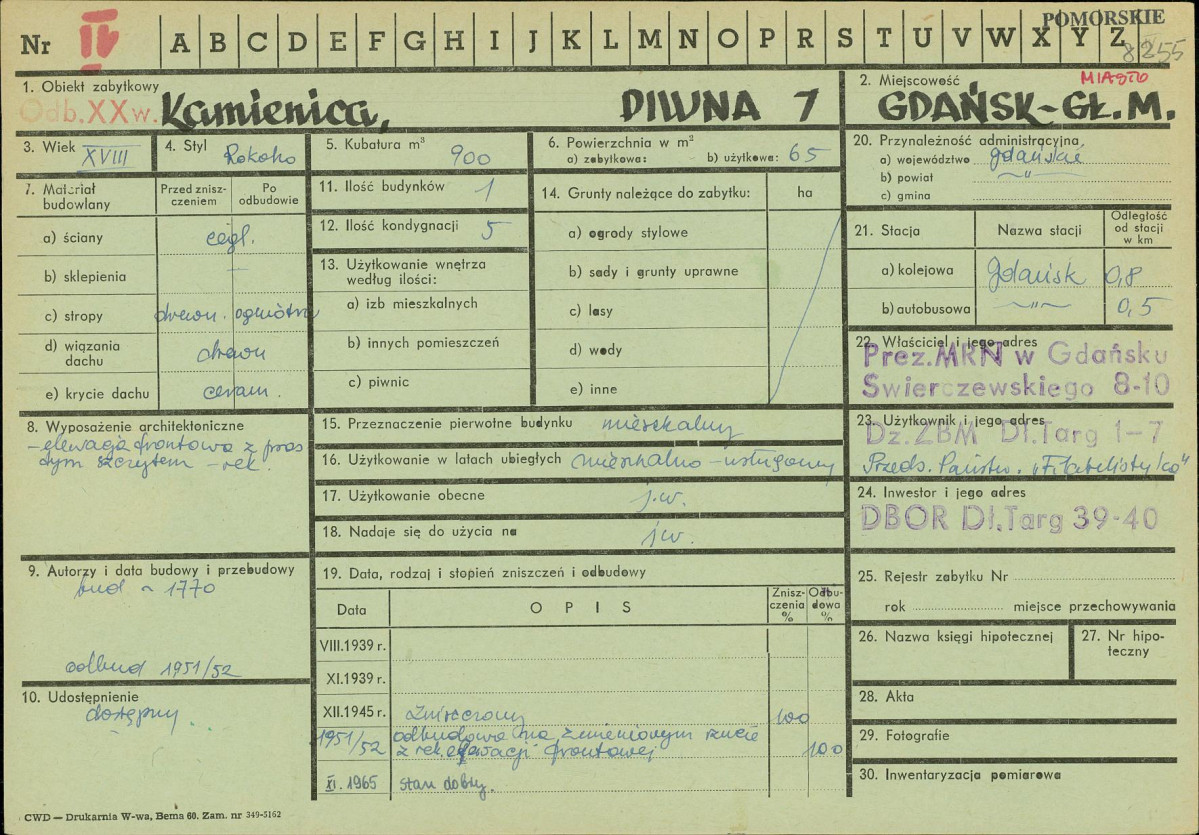 Nr IV A B C D E F G H I J K L M N O P R S T U V W X Y Z
POMORSKIE
8255
1. Obiekt zabytkowy
Odb. XX w. Kamienica, PIWNA 7
2. Miejscowość MIASTO
GDAŃSK-GŁ.M.
3. Wiek XVIII
4. Styl Rokoko
5. Kubatura m³ 900
6. Powierzchnia w m²
a) zabytkowa: b) użytkowa: 65
7. Materiał budowlany
Przed zniszczeniem
Po odbudowie
a) ściany cegł.
b) sklepienia —
c) stropy drewn. ogniotrw
d) wiązania dachu drewn
e) krycie dachu ceram.
8. Wyposażenie architektoniczne
- elewacja frontowa z pros
tym szczytem - rek.
9. Autorzy i data budowy i przebudowy
bud ~ 1770
odbud 1951/52
10. Udostępnienie
dostępny
11. Ilość budynków 1
12. Ilość kondygnacji 5
13. Użytkowanie wnętrza
według ilości:
a) izb mieszkalnych
b) innych pomieszczeń
c) piwnic
14. Grunty należące do zabytku: ha
a) ogrody stylowe
b) sady i grunty uprawne
c) lasy
d) wody
e) inne
15. Przeznaczenie pierwotne budynku mieszkalny
16. Użytkowanie w latach ubiegłych mieszkalno-usługowy
17. Użytkowanie obecne j.w.
18. Nadaje się do użycia na j.w.
19. Data, rodzaj i stopień zniszczeń i odbudowy
Data OPIS Zniszczenia % Odbudowa %
VIII.1939 r.
XI.1939 r.
XII.1945 r. Zniszczony 100
1951/52 odbudowa na zmienionym rzucie
z rek. elewacji frontowej 100
XI. 1965 stan dobry.
20. Przynależność administracyjna
a) województwo gdańskie
b) powiat —"—
c) gmina
21. Stacja Nazwa stacji Odległość od stacji w km
a) kolejowa Gdańsk 0,8
b) autobusowa —"— 0,5
22. Właściciel i jego adres
Prez. MRN w Gdańsku
Swierczewskiego 8-10
23. Użytkownik i jego adres
Dz. ZBM Dł.Targ 1-7
Przeds. Państw. "Filatelistyka"
24. Inwestor i jego adres
DBOR Dł.Targ 39-40
25. Rejestr zabytku Nr
rok miejsce przechowywania
26. Nazwa księgi hipotecznej
27. Nr hipoteczny
28. Akta
29. Fotografie
30. Inwentaryzacja pomiarowa
CWD — Drukarnia W-wa, Bema 60. Zam. nr 349-5162